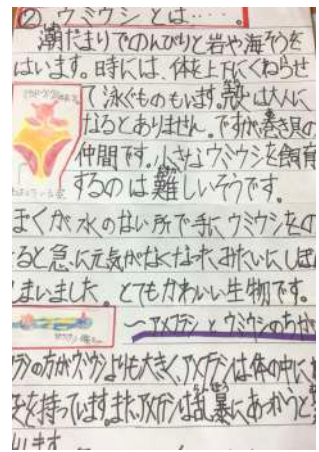 ② ウミウシとは‥‥。
潮だまりでのんびりと岩や海そうを
はいます。時には、体を上下にくねらせ
て泳ぐものもいます。殻は大人に
なるとありません。ですが巻き貝の
仲間です。小さなウミウシを飼育
するのは難しいそうです。
ぼくが水のない所で手にウミウシをの
ると急に元気がなくなったみたいにしぼ
しまいました。とてもかわいい生物です。
〜アメフラシとウミウシのちがい
ラシの方がウミウシよりも大きく、アメフラシは体の中に
を持っています。また、アメフラシは乱暴にあつかうと
します